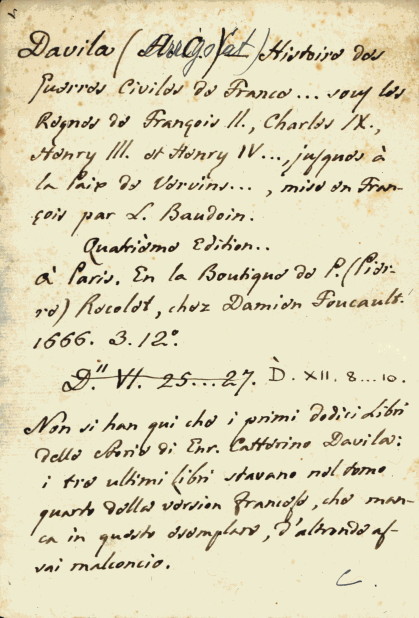 Davila ( ) Histoire des
Guerres Civiles de France... souz les
Regnes de François II., Charles IX.,
Henry III. et Henry IV..., jusques à
la Paix de Vervins..., mise en Fran-
çois par L. Baudoin.
Quatriéme Edition..
à Paris. En la Boutique de P. (Pier-
re) Rocolet, chez Damien Foucault.
1666. 3. 12º.
D." VI. 25...27. D. XII. 8...10.
Non si han qui che i primi dodici Libri
delle Storie di Enr. Catterino Davila:
i tre ultimi libri stavano nel tomo
quarto della version francese, che man-
ca in questo esemplare, d'altronde as-
sai malconcio.
C.